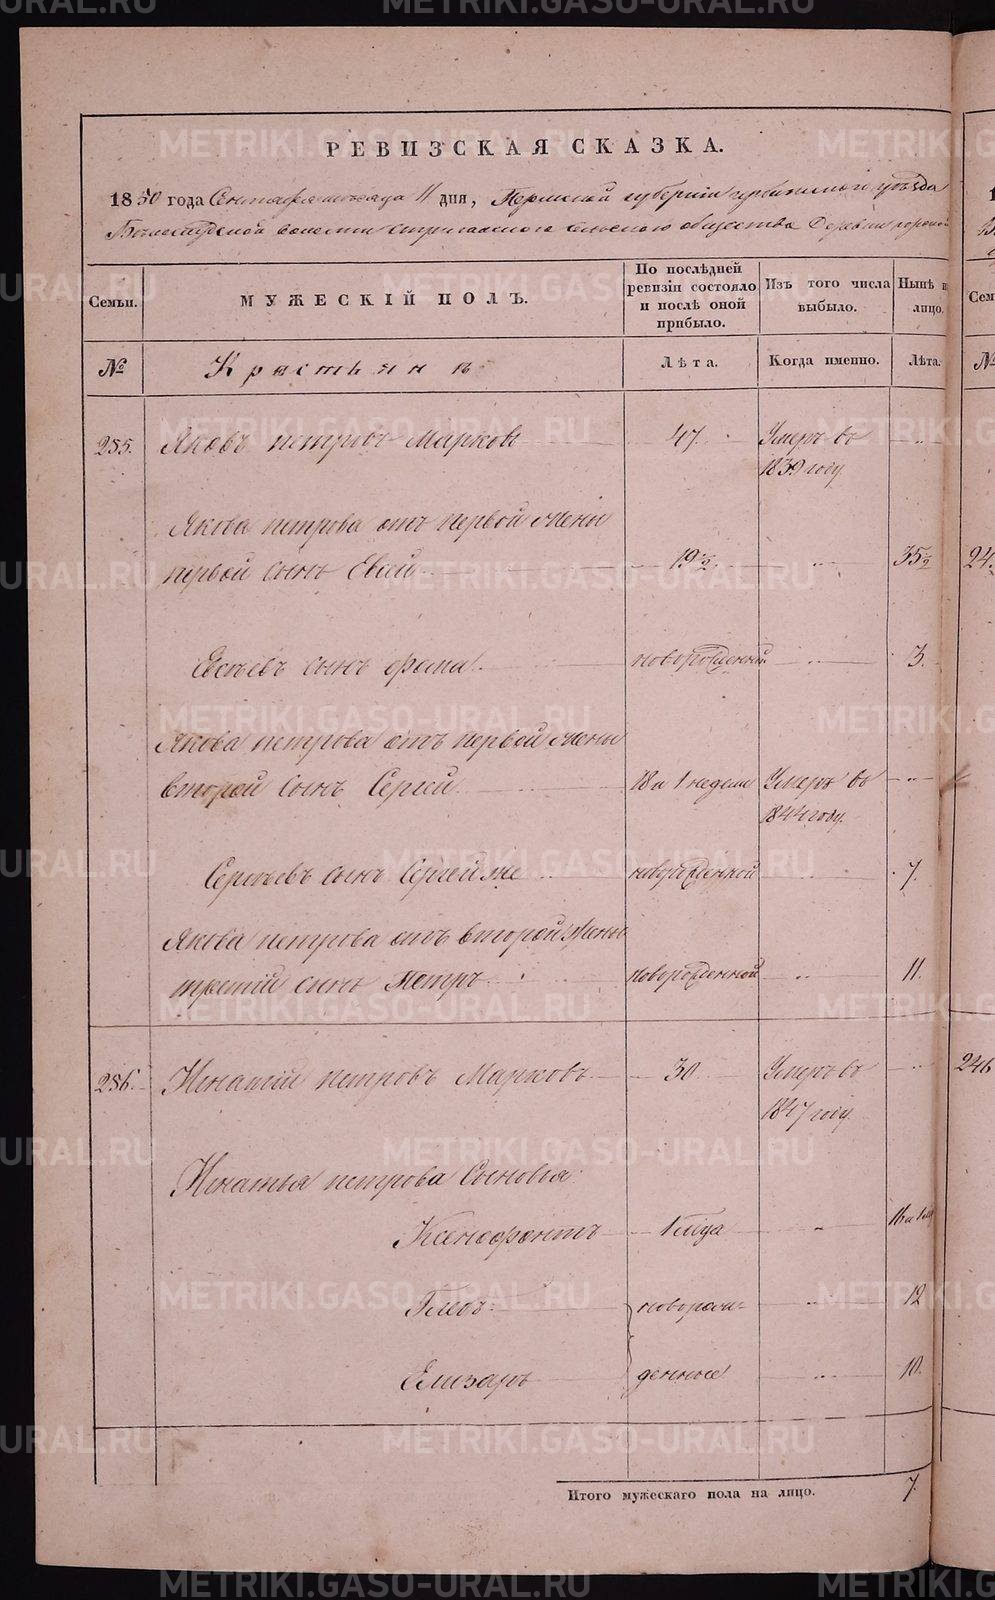 РЕВИЗСКАЯ СКАЗКА.
1850 года Сентября месяца 11 дня, Пермской губернии уезда
волости сельского общества Деревни
Семьи. МУЖЕСКІЙ ПОЛЪ. По послѣдней ревизіи состояло и послѣ оной прибыло. Изъ того числа выбыло. Нынѣ н лицо.
№ Крестьянъ Лѣта. Когда именно. Лѣта.
285. Яковъ петровъ Марковъ 47. Умеръ въ
1839 году.
Якова петрова отъ первой жены
первой сынъ Евсей 19 1/2. 35 1/2
Евсѣевъ сынъ фома новорожденный 3.
Якова петрова отъ первой жены
второй сынъ Сергей 18 и 1 недели Умеръ въ
1844 году.
Сергѣевъ сынъ Сергей же новорожденной 7.
Якова петрова отъ второй жены
третій сынъ Петръ новорожденной 11.
286. Игнатій петровъ Марковъ 30 Умеръ въ
1847 году.
Игнатья петрова Сыновья:
Ксенофонтъ 1 м͠ца
Глебъ новорож- 12
Елизаръ денные 10.
Итого мужескаго пола на лицо. 7.
24
246
METRIKI.GASO-URAL.RU